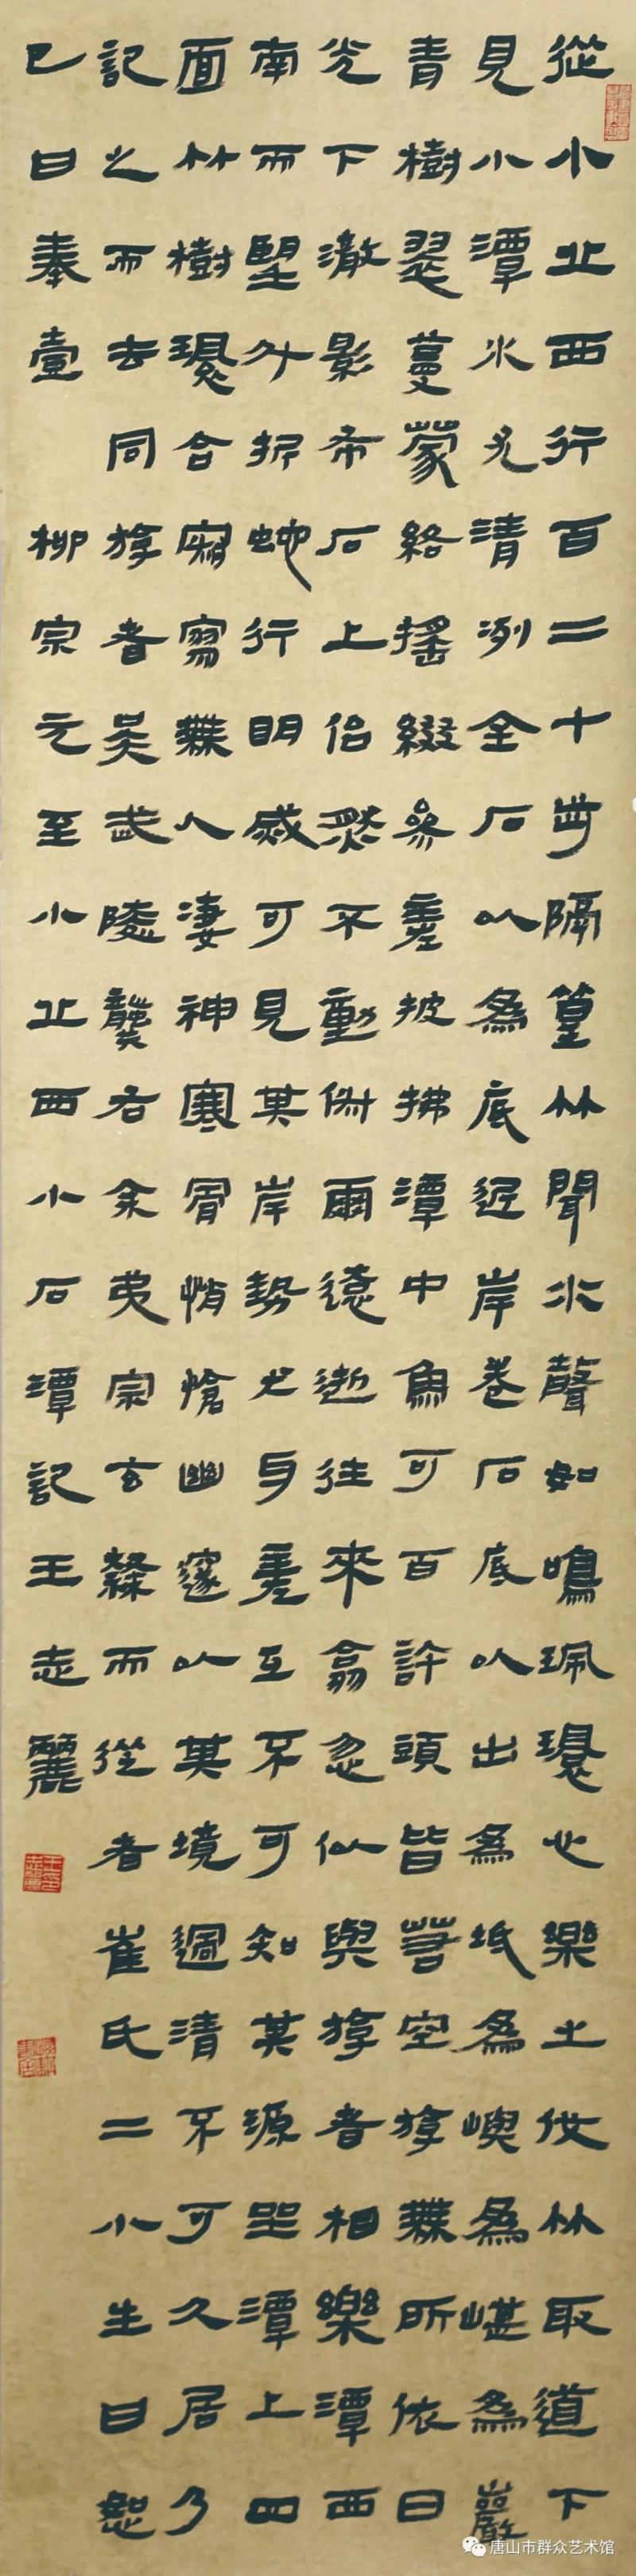 從小丘西行百二十步隔篁竹聞水聲如鳴珮環心樂之伐竹取道下
見小潭水尤清冽全石以為底近岸卷石底以出為坻為嶼為嵁為巖
青樹翠蔓蒙絡搖綴參差披拂潭中魚可百許頭皆若空游無所依日
光下澈影布石上佁然不動俶爾遠逝往來翕忽似與游者相樂潭西
南而望斗折蛇行明滅可見其岸勢犬牙差互不可知其源坐潭上四
面竹樹環合寂寥無人淒神寒骨悄愴幽邃以其境過清不可久居乃
記之而去同游者吳武陵龔右余弟宗玄隸而從者崔氏二小生曰恕
己曰奉壹 柳宗元至小丘西小石潭記王志麗
唐山市群众艺术馆